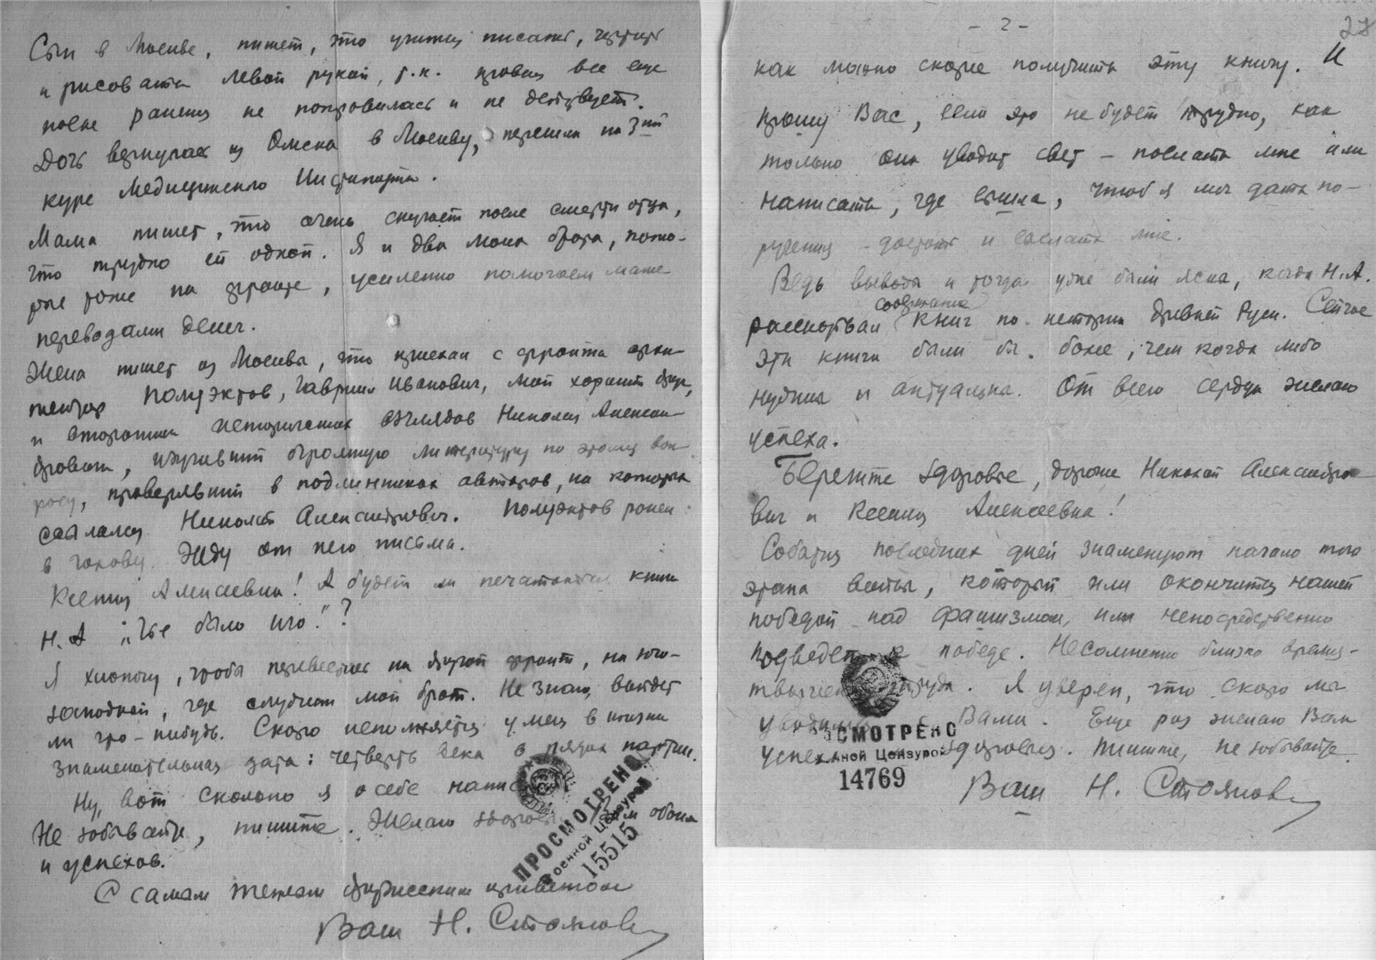 Сын в Москве, пишет, что учится писать, чертить
и рисовать левой рукой, т.к. правая все еще
после ранения не поправилась и не действует.
Дочь вернулась из Омска в Москву, перешла на 3ий
курс Медицинского Института.
Мама пишет, что очень скучает после смерти отца,
что трудно ей одной. Я и два моих брата, кото-
рые тоже на фронте, усиленно помогаем маме
переводами денег.
Жена пишет из Москвы, что приехал с фронта архи-
тектор Полуэктов, Гавриил Иванович, мой хороший друг,
и сторонник исторических взглядов Николая Алексан-
дровича, изучивший огромную литературу по этому воп-
росу, проверявший в подлинниках авторов, на которых
ссылался Николай Александрович. Полуэктов ранен
в голову. Жду от него письма.
Ксения Алексеевна! А будет ли печататься книга
Н.А. "Где было иго"?
Я хлопочу, чтобы перевестись на другой фронт, на юго-
западный, где служит мой брат. Не знаю, выйдет
ли что-нибудь. Скоро исполняется у меня в жизни
знаменательная дата: четверть века в рядах партии.
Ну, вот сколько я о себе напис
Не забывайте, пишите. Желаю здоровья Вам обоим
и успехов.
С самым теплым дружеским приветом
Ваш Н. Стоянов
ПРОСМОТРЕНО
Военной Цензурой
15515
- 2 -
27
как можно скорее получить эту книгу. И
прошу Вас, если это не будет трудно, как
только она увидит свет – послать мне или
написать, где вышла, чтоб я мог дать по-
ручение - достать и выслать мне.
Ведь выводы и тогда уже были ясны, когда Н.А.
содержание
рассказывал книг по истории древней Руси. Сейчас
эти книги были бы более, чем когда либо
нужны и актуальны. От всего сердца желаю
успеха.
Берегите здоровье, дорогие Николай Александро-
вич и Ксения Алексеевна!
События последних дней знаменуют начало того
этапа войны, который или окончится нашей
победой над фашизмом, или непосредственно
подведет к победе. Несомненно близко время
труда. Я уверен, что скоро мы
увидимся с Вами. Еще раз желаю Вам
успех здоровья. Пишите, не забывайте.
Ваш Н. Стоянов
ПРОСМОТРЕНО
Военной Цензурой
14769